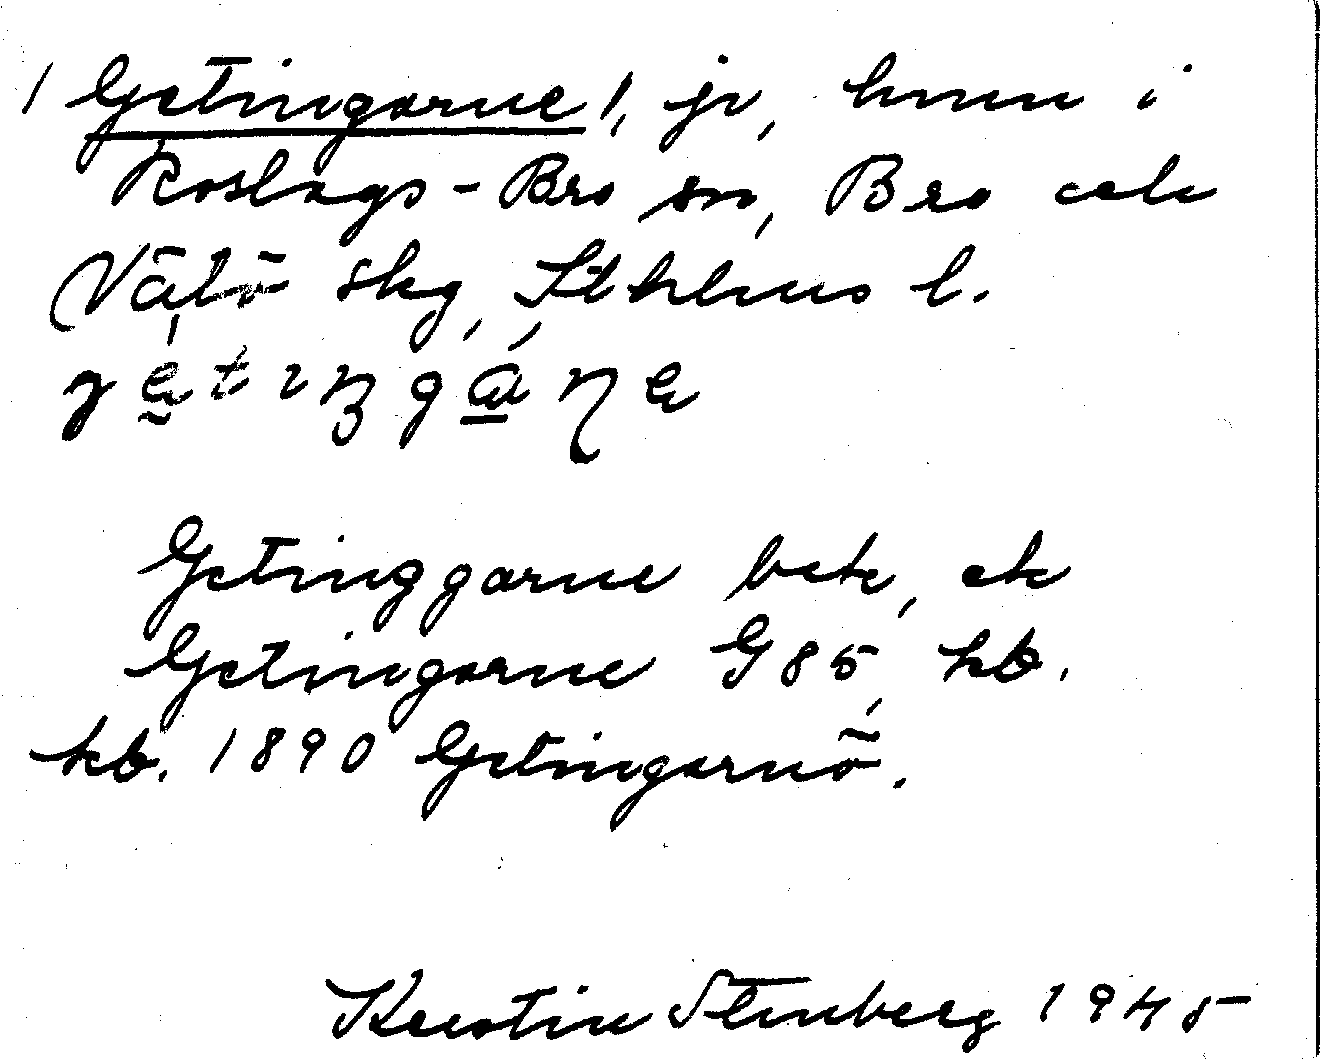 / Getingarne /, jv, hmn i
Roslags-Bro sn, Bro och
Vätö skg, Sthlms l.
Getinggarne bek, ek
Getingarne G85, kb.
kb. 1890 Getingarnö.
Kerstin Stenberg 1945